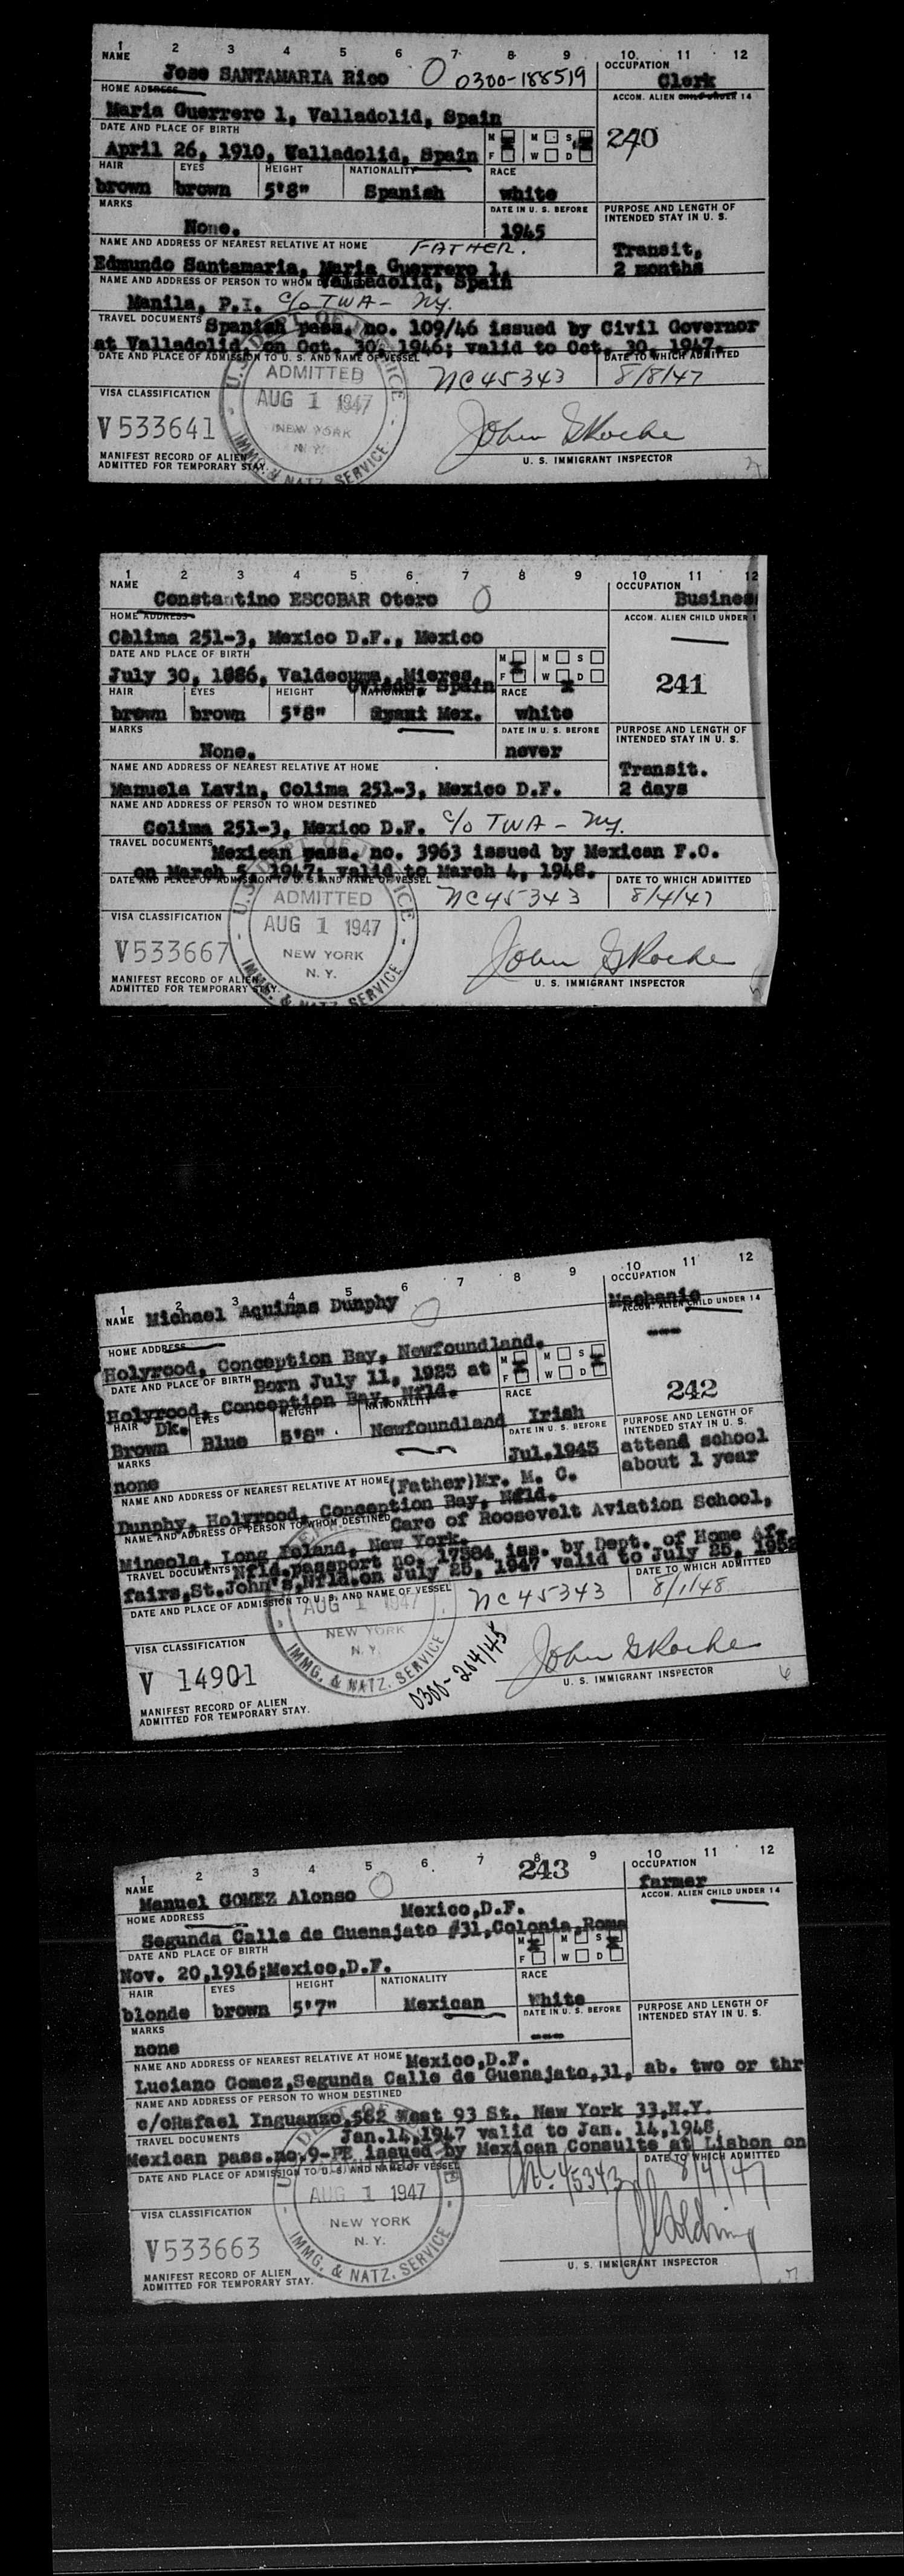 1 2 3 4 5 6 7 8 9 10 11 12
NAME Jose SANTAMARIA Rico O 0300-188519
OCCUPATION Clerk
HOME ADDRESS
Maria Guerrero 1, Valladolid, Spain
ACCOM. ALIEN CHILD UNDER 14
240
DATE AND PLACE OF BIRTH
April 26, 1910, Valladolid, Spain
M F M S W D
HAIR EYES HEIGHT NATIONALITY RACE
brown brown 5'8" Spanish white
MARKS
None.
DATE IN U. S. BEFORE
1945
PURPOSE AND LENGTH OF INTENDED STAY IN U. S.
Transit,
2 months
NAME AND ADDRESS OF NEAREST RELATIVE AT HOME FATHER.
Edmundo Santamaria, Maria Guerrero 1,
Valladolid, Spain
NAME AND ADDRESS OF PERSON TO WHOM DESTINED
Manila, P.I. c/o TWA - NY.
TRAVEL DOCUMENTS Spanish pass. no. 109/46 issued by Civil Governor
at Valladolid, on Oct. 30, 1946; valid to Oct. 30, 1947.
DATE AND PLACE OF ADMISSION TO U. S. AND NAME OF VESSEL
DATE TO WHICH ADMITTED
NC45343 8/8/47
ADMITTED
AUG 1 1947
NEW YORK
N. Y.
IMMG. & NATZ. SERVICE
VISA CLASSIFICATION
V533641
John G Roche
U. S. IMMIGRANT INSPECTOR
MANIFEST RECORD OF ALIEN
ADMITTED FOR TEMPORARY STAY.
1 2 3 4 5 6 7 8 9 10 11 12
NAME Constantino ESCOBAR Otero O
OCCUPATION Busines
HOME ADDRESS
Colima 251-3, Mexico D.F., Mexico
ACCOM. ALIEN CHILD UNDER 1
241
DATE AND PLACE OF BIRTH
July 30, 1886, Mieres,
Spain
M F M S W D
HAIR EYES HEIGHT NATIONALITY RACE
brown brown 5'8" Mex. white
MARKS
None.
DATE IN U. S. BEFORE
never
PURPOSE AND LENGTH OF INTENDED STAY IN U. S.
Transit.
2 days
NAME AND ADDRESS OF NEAREST RELATIVE AT HOME
Manuela Lavin, Colima 251-3, Mexico D.F.
NAME AND ADDRESS OF PERSON TO WHOM DESTINED
Colima 251-3, Mexico D.F. c/o TWA - NY.
TRAVEL DOCUMENTS Mexican pass. no. 3963 issued by Mexican F.O.
on March 5, 1947; valid to March 4, 1948.
DATE AND PLACE OF ADMISSION TO U. S. AND NAME OF VESSEL
DATE TO WHICH ADMITTED
NC45343 8/4/47
ADMITTED
AUG 1 1947
NEW YORK
N. Y.
IMMG. & NATZ. SERVICE
VISA CLASSIFICATION
V533667
John G Roche
U. S. IMMIGRANT INSPECTOR
MANIFEST RECORD OF ALIEN
ADMITTED FOR TEMPORARY STAY.
1 2 3 4 5 6 7 8 9 10 11 12
NAME Michael Aquinas Dunphy O
OCCUPATION Mechanic
ACCOM. ALIEN CHILD UNDER 14
---
242
HOME ADDRESS
Holyrood, Conception Bay, Newfoundland.
DATE AND PLACE OF BIRTH Born July 11, 1923 at
Holyrood, Conception Bay, Nfld.
M F M S W D
HAIR EYES HEIGHT NATIONALITY RACE
Dk. Brown Blue 5'8" Newfoundland Irish
MARKS
none
DATE IN U. S. BEFORE
Jul.1943
PURPOSE AND LENGTH OF INTENDED STAY IN U. S.
attend school
about 1 year
NAME AND ADDRESS OF NEAREST RELATIVE AT HOME (Father)Mr. M. C.
Dunphy, Holyrood, Conception Bay, Nfld.
NAME AND ADDRESS OF PERSON TO WHOM DESTINED Care of Roosevelt Aviation School,
Mineola, Long Island, New York.
TRAVEL DOCUMENTS Nfld.passport no. 17584 iss. by Dept. of Home Af-
fairs,St.John's,Nfld.on July 25, 1947 valid to July 25, 1952
DATE AND PLACE OF ADMISSION TO U. S. AND NAME OF VESSEL
DATE TO WHICH ADMITTED
NC45343 8/1/48
AUG 1 1947
NEW YORK
N. Y.
IMMG. & NATZ. SERVICE
VISA CLASSIFICATION
V 14901
0300-264145
John G Roche
U. S. IMMIGRANT INSPECTOR
MANIFEST RECORD OF ALIEN
ADMITTED FOR TEMPORARY STAY.
1 2 3 4 5 6 7 8 9 10 11 12
243
NAME Manuel GOMEZ Alonso O
OCCUPATION farmer
ACCOM. ALIEN CHILD UNDER 14
HOME ADDRESS Mexico,D.F.
Segunda Calle de Guenajato #31,Colonia,Roma
DATE AND PLACE OF BIRTH
Nov. 20,1916;Mexico,D.F.
M F M S W D
HAIR EYES HEIGHT NATIONALITY RACE
blonde brown 5'7" Mexican White
MARKS
none
DATE IN U. S. BEFORE
---
PURPOSE AND LENGTH OF INTENDED STAY IN U. S.
NAME AND ADDRESS OF NEAREST RELATIVE AT HOME Mexico,D.F.
Luciano Gomez,Segunda Calle de Guenajato,31, ab. two or thr
NAME AND ADDRESS OF PERSON TO WHOM DESTINED
c/oRafael Inguanzo,582 West 93 St. New York 33,N.Y.
TRAVEL DOCUMENTS Jan.14,1947 valid to Jan. 14,1948
Mexican pass.no.9-PE issued by Mexican Consulte at Lisbon on
DATE AND PLACE OF ADMISSION TO U. S. AND NAME OF VESSEL
DATE TO WHICH ADMITTED
NC-45343 8/4/47
AUG 1 1947
NEW YORK
N. Y.
IMMG. & NATZ. SERVICE
VISA CLASSIFICATION
V533663
U. S. IMMIGRANT INSPECTOR
MANIFEST RECORD OF ALIEN
ADMITTED FOR TEMPORARY STAY.